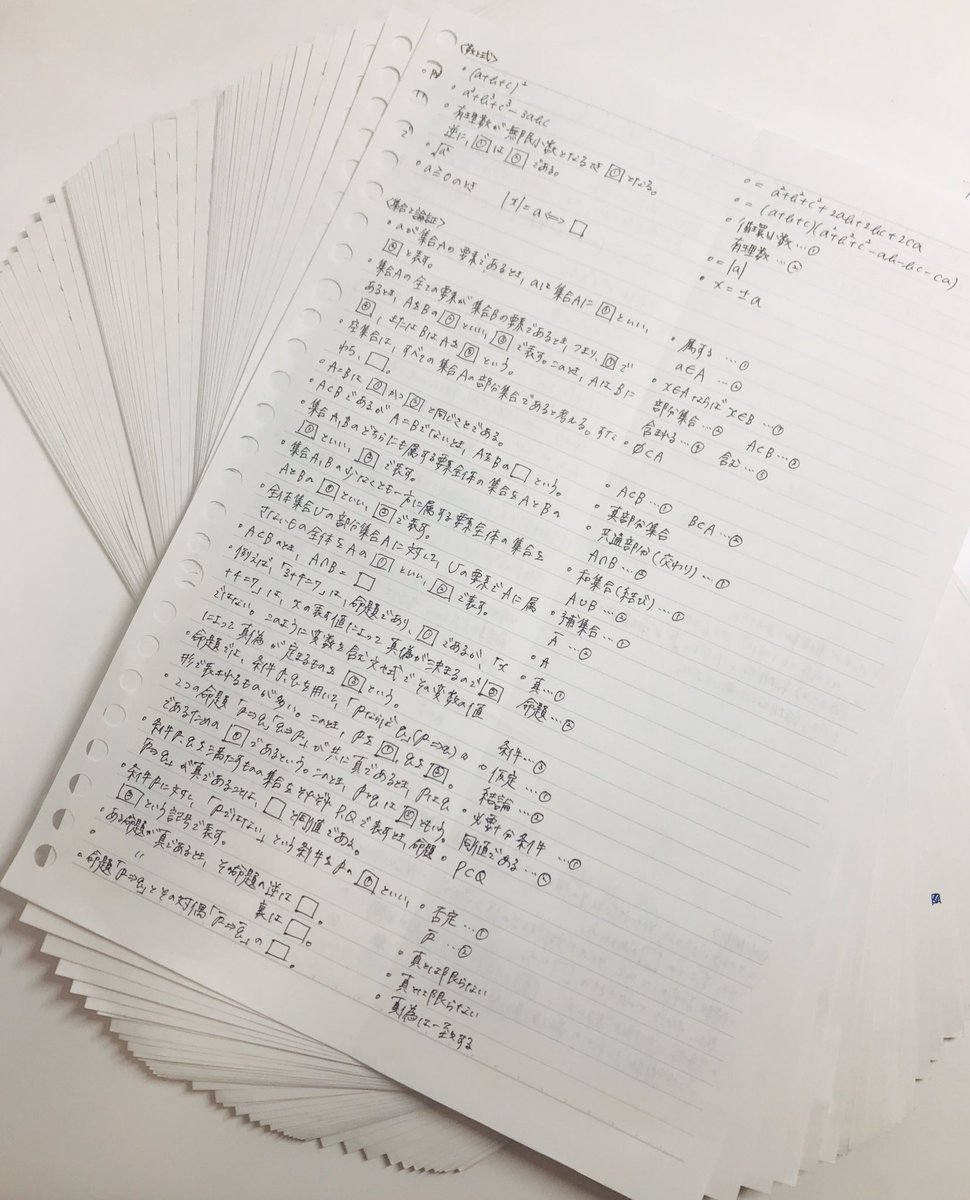 <数と式>
• (a+b+c)²
• a³+b³+c³-3abc
• 有理数が無限小数となるとき①となる。
逆に、①は②である。
• √a²
• a≧0のとき |x|=a⇔□
<集合と論証>
• aが集合Aの要素であるとき、aは集合Aに①といい、
②と表す。
• 集合Aの全ての要素が集合Bの要素であるとき、つまり、①で
あるとき、AをBの②といい、③で表す。このとき、AはBに
④、またはBはAを⑤という。
• 空集合は、すべての集合Aの部分集合であると考える。すな
わち、□。
• A=Bは①かつ②と同じことである。
• A⊂BであるがA=Bでないとき、AをBの□という。
• 集合A,Bのどちらにも属する要素全体の集合をAとBの
①といい、②で表す。
• 集合A,Bの少なくとも一方に属する要素全体の集合を
AとBの①といい、②で表す。
• 全体集合Uの部分集合Aに対して、Uの要素でAに属
さないもの全体をAの①といい、②で表す。
• A⊂Bのとき、A∩B=□
• 例えば、「3+4=7」は、命題であり、①であるが、「x
+4=7」は、xの表す値によって真偽が決まるので②
ではない。このように変数を含む文や式でその変数の値
によって真偽が定まるものを③という。
• 命題では、条件p,qを用いて、「pならばq」(p⇒q)の
形で表されるものが多い。このとき、pを①、qを②。
• 2つの命題「p⇒q」「q⇒p」が共に真であるとき、pはq
であるための①であるという。このとき、pとqは②ともいう。
• 条件p,qを満たすものの集合をそれぞれP,Qで表すとき、命題
「p⇒q」が真であることは、□と同値である。
• 条件pに対し、「pでない」という条件をpの①といい、
②という記号で表す。
• ある命題が真であるとき、その命題の逆は□。
• 〃 裏は□。
• 命題「p⇒q」とその対偶「p̅⇒q̅」の□。
• = a²+b²+c²+2ab+2bc+2ca
• = (a+b+c)(a²+b²+c²-ab-bc-ca)
• 循環小数…①
有理数…②
• = |a|
• x=±a
• 属する…①
a∈A…②
• x∈Aならばx∈B…①
部分集合…② A⊂B…③
含まれる…④ 含む…⑤
• ∅⊂A
• A⊂B…① B⊂A…②
• 真部分集合
• 共通部分(交わり)…①
A∩B…②
• 和集合(結び)…①
A∪B…②
• 補集合…①
A̅…②
• A
• 真…①
命題…②
条件…③
• 仮定…①
結論…②
• 必要十分条件…①
同値である…②
• P⊂Q
• 否定…①
p̅…②
• 真とは限らない
• 真とは限らない
• 真偽は一致する